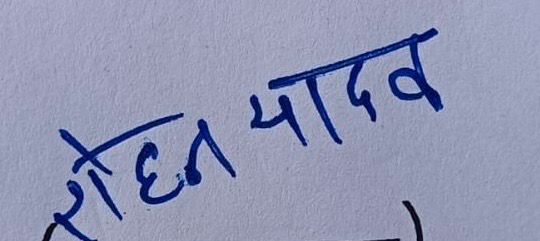 रोहन यादव